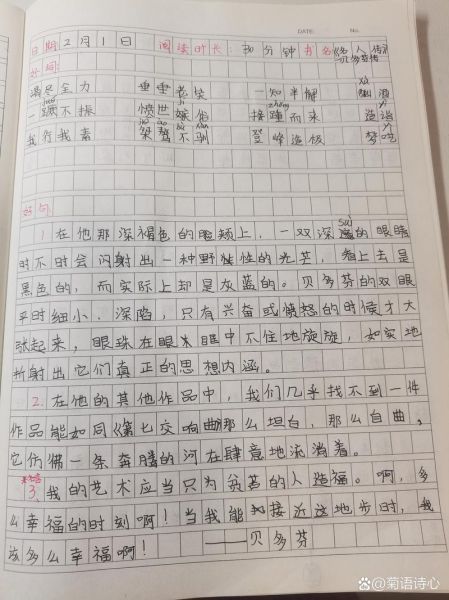 DATE: NO.
日期: 2月1日 阅读时长: 30分钟 书名《名人传》
贝多芬传
好词:
竭尽全力 垂垂老矣 一知半解 酗酒
一蹶不振 愤世嫉俗 接踵而来 造诣
我行我素 桀骜不驯 登峰造极 梦呓
好句:
1. 在他那深褐色的脸颊上,一双深邃的眼睛
时不时会闪射出一种野性的光芒,看上去是
黑色的,而实际上却是灰蓝的。贝多芬的双眼
平时细小、深陷,只有兴奋或愤怒的时候才大
张起来,眼珠在眼眶中不住地旋旋,如实地
折射出它们真正的思想内涵。
2. 在他的其他作品中,我们几乎找不到一件
作品能如同《第七交响曲》那么坦白,那么自由,
它仿佛一条奔腾的河在肆意地流淌着。
3. 我的艺术应当只为贫苦的人造福。啊,多
么幸福的时刻啊!当我能接近这地步时,我
该多么幸福啊! ——贝多芬
@菊语诗心